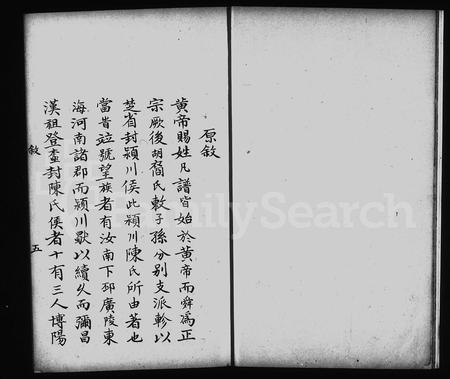 原敘
黃帝賜姓凡譜皆始於黃帝而舜爲正
宗厥後胡裔氏敷子孫分別支派軫以
芝省封潁川侯此潁川陳氏所由著也
當昔竝號望族者有汝南下邳廣陵東
海河南諸郡而潁川歇以續久而彌昌
漢祖登壹封陳氏侯者十有三人博陽
敘
五
FamilySearch